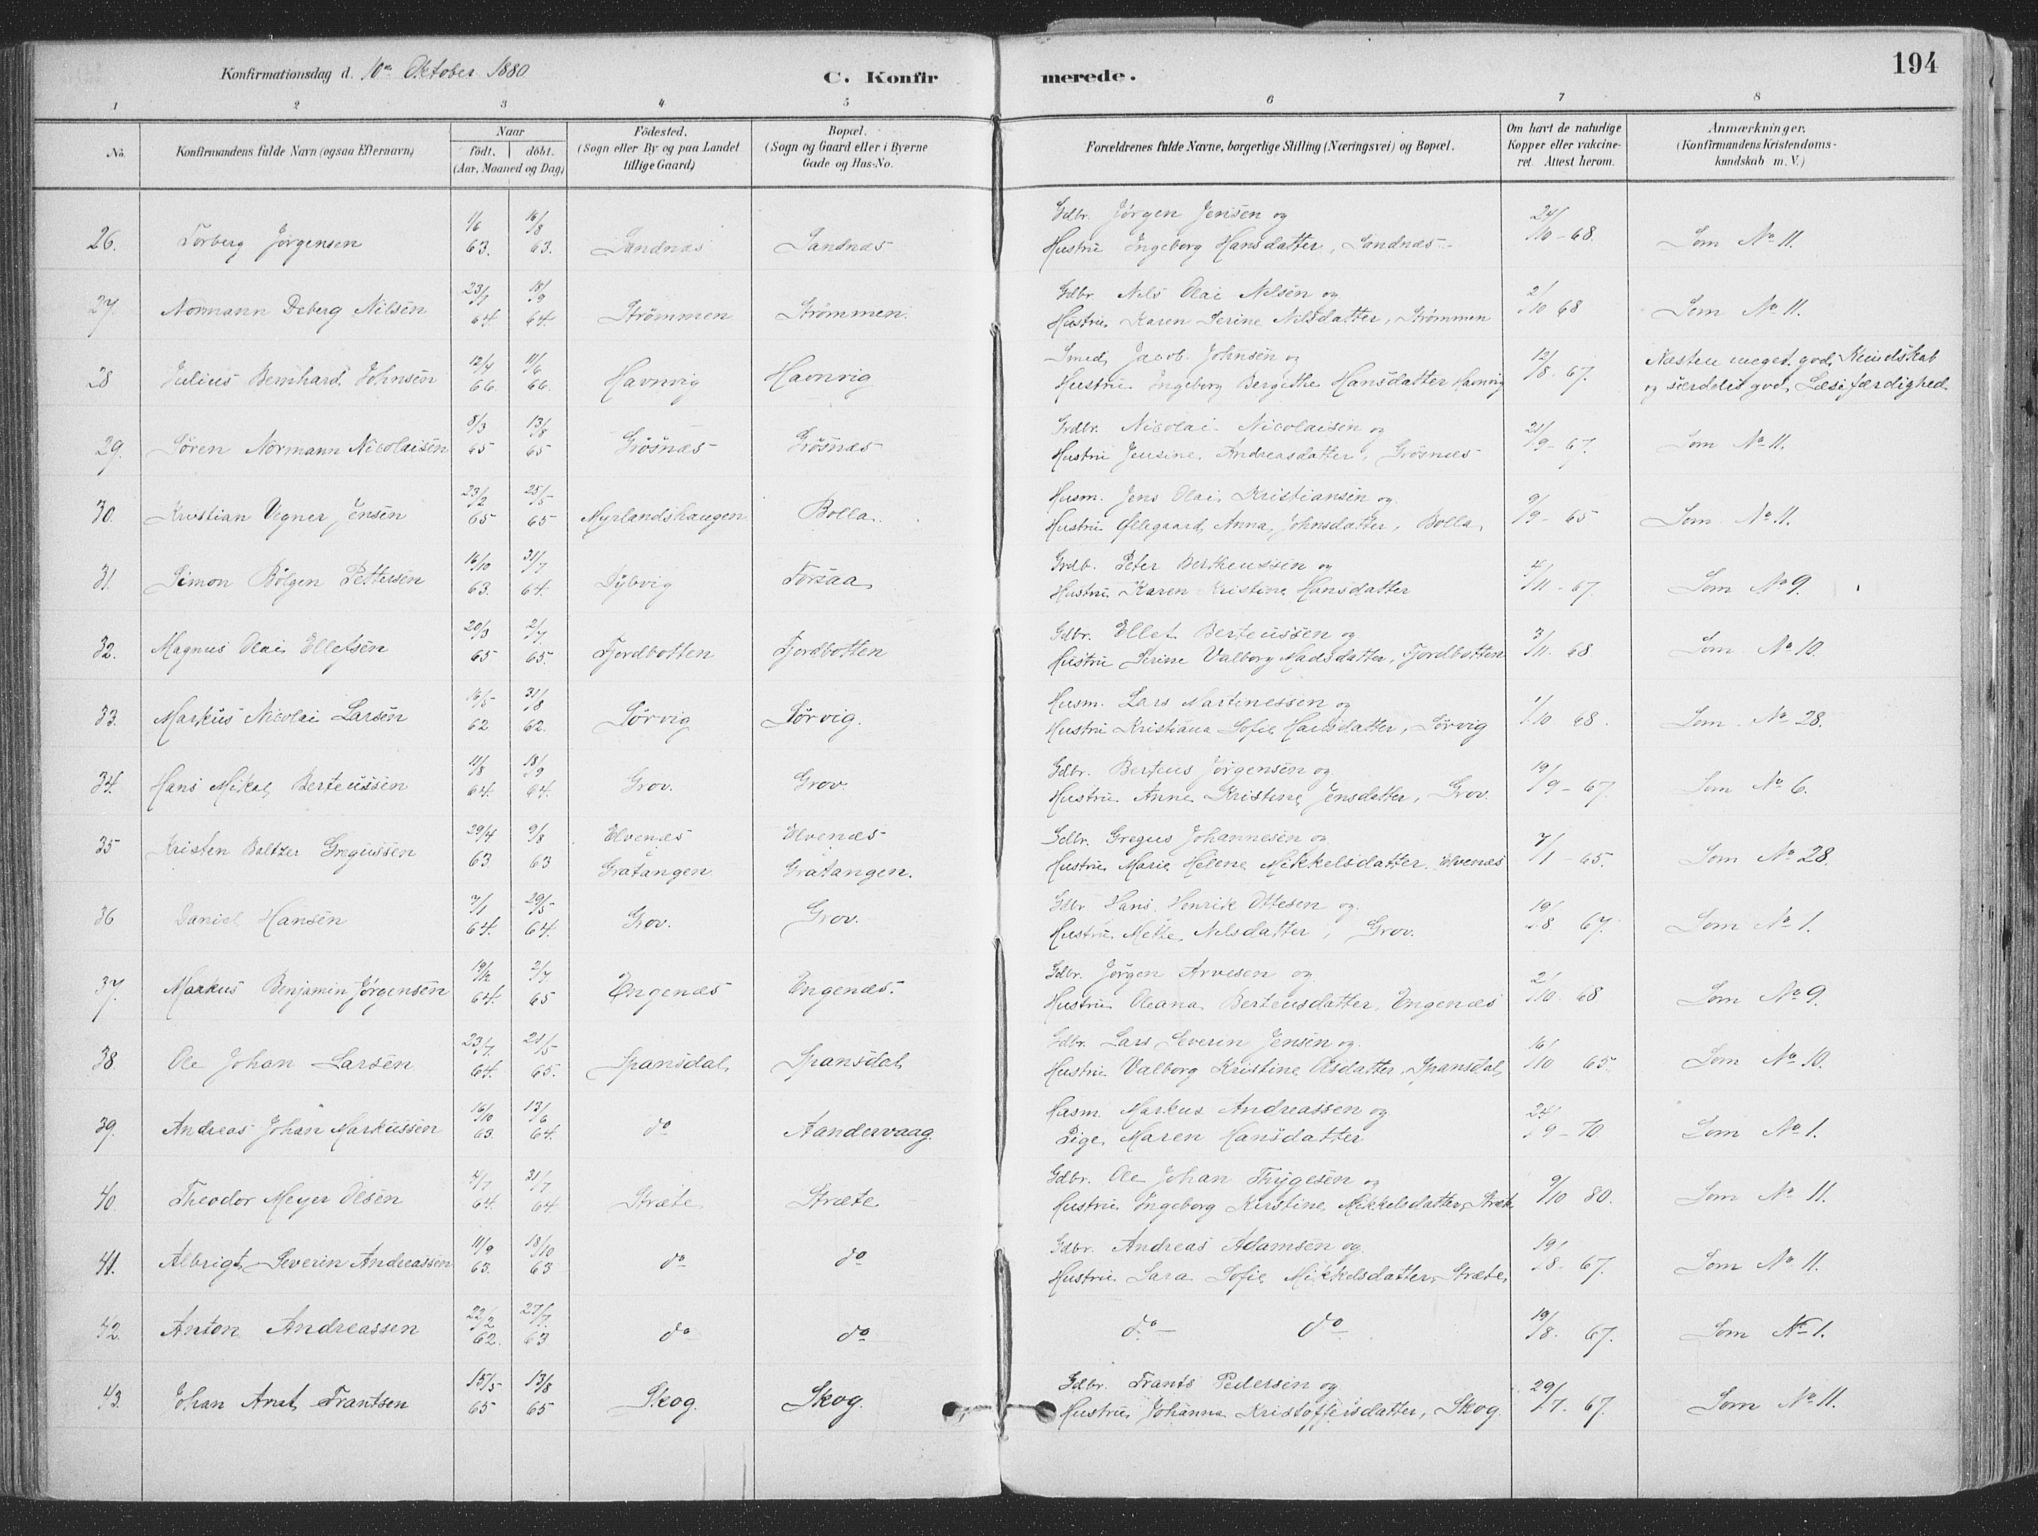 194
Konfirmationsdag d. 10de Oktober 1880 C. Konfirmerede.
1 2 3 4 5 6 7 8
No. Konfirmandens fulde Navn (ogsaa Efternavn) Naar født. døbt. (Aar, Maaned og Dag) Fødested. (Sogn eller By og paa Landet tillige Gaard) Bopæl. (Sogn og Gaard eller i Byerne Gade og Hus-No. Forældrenes fulde Navne, borgerlige Stilling (Næringsvei) og Bopæl. Om havt de naturlige Kopper eller vakcineret. Attest herom. Anmærkninger. (Konfirmandens Kristendomskundskab m. V.)
26. Torberg Jørgensen 1/6 63. 16/8 63. Sandnæs Sandnæs Gdbr. Jørgen Jensen og 24/10-68. Som No 11.
Hustru Ingeborg Hansdatter, Sandnæs
27. Normann Deberg Nilsen 23/7 64. 18/9 64. Strømmen Strømmen. Gdbr. Nils Olai Nilsen og 2/10 68 Som No 11.
Hustru Karen Serine Nilsdatter, Strømmen
28 Julius Bernhard Johnsen 12/4 66. 11/6 66. Havnvig Havnvig Smed Jacob Johnsen og 12/8-67. Næsten meget god Kundskab
Hustru Ingeborg Bergithe Hansdatter Havnvig og særdeles god Læsefærdighed
29. Søren Normann Nicolaisen 8/3 65 13/8 65 Grøsnæs Grøsnæs Grdbr. Nicolai Nicolaisen og 21/9-67. Som No 11.
Hustru Jensine Andreasdatter, Grøsnæs
30. Kristian Vegner Jensen 23/2 65 25/5 65 Myrlandshaugen Bolla. Husm. Jens Olai Kristiansen og 9/9-65 Som No 11.
Hustru Ølegaard Anna Johnsdatter, Bolla,
31. Simon Bølgen Pettersen 16/10 63. 31/7 64. Dybvig Forsaa, Grdb. Peter Bertheussen og 4/11-67. Som No 9.
Hustru Karen Kristine Hansdatter
32. Magnus Olai Ellefsen 20/3 65 2/7 65. Fjordbotten Fjordbotten Gdbr. Ellef Berteussen og 3/11. 68 Som No 10.
Hustru Serine Valborg Madsdatter, Fjordbotten
33. Markus Nicolai Larsen 16/5 62 31/8 62. Sørvig Sørvig. Husm. Lars Martinessen og 1/10 68. Som No 28.
Hustru Kristiana Sofie Hansdatter, Sørvig
34. Hans Mikal Berteussen 11/8 64. 18/9 64. Grov. Grov Gdbr. Berteus Jørgensen og 19/9-67. Som No 6.
Hustru Anne Kristine Jensdatter, Grov.
35 Kristen Baltzer Gregussen 29/4 63 9/8 63 Elvenæs i Gratangen Elvenæs Gratangen. Gdbr. Gregus Johannesen og 7/1-65. Som No 28.
Hustru Marie Helene Mikkelsdatter. Elvenæs
36 Daniel Hansen 7/1 64. 29/5 64. Grov. Grov. Gdbr Hans Henrik Ottesen og 19/8 67. Som No 1.
Hustru Mette Nilsdatter, Grov.
37. Markus Benjamin Jørgensen 19/12 64. 2/7 65 Engenæs Engenæs. Gdbr. Jørgen Arvesen og 2/10. 68 Som No 9.
Hustru Oleana Berteusdatter, Engenæs
38. Ole Johan Larsen 23/7 64. 21/5 65. Spansdal, Spansdal Gdbr. Lars Severin Jensen og 16/10 65. Som No 10.
Hustru Valborg Kristine Olsdatter, Spansdal,
39. Andreas Johan Markussen 16/10 63. 13/6 64. do Aandervaag. Husm. Markus Andreassen og 24/9-70 Som No 1.
Pige Maren Hansdatter
40. Theodor Meyer Olsen 4/7 64. 31/7 64 Stræte Stræte Gdbr. Ole Johan Thygesen og 9/10 80. Som No 11.
Hustru Ingeborg Kirstine Mikkelsdatter, Stræte
41. Albrigt Severin Andreassen 11/9 63. 18/10 63 do do Gdbr. Andreas Adamsen og 19/8-67. Som No 11.
Hustru Sara Sofie Mikkelsdatter, Stræte,
42. Anton Andreassen 22/2 62. 27/7. 63 do do do do 19/8. 67. Som No 1.
43. Johan Arnt Frantsen 15/5 65 13/8 65 Skog. Skog. Gdbr. Frants Pedersen og 29/7. 67. Som No 11.
Hustru Johanna Kristoffersdatter, Skog.